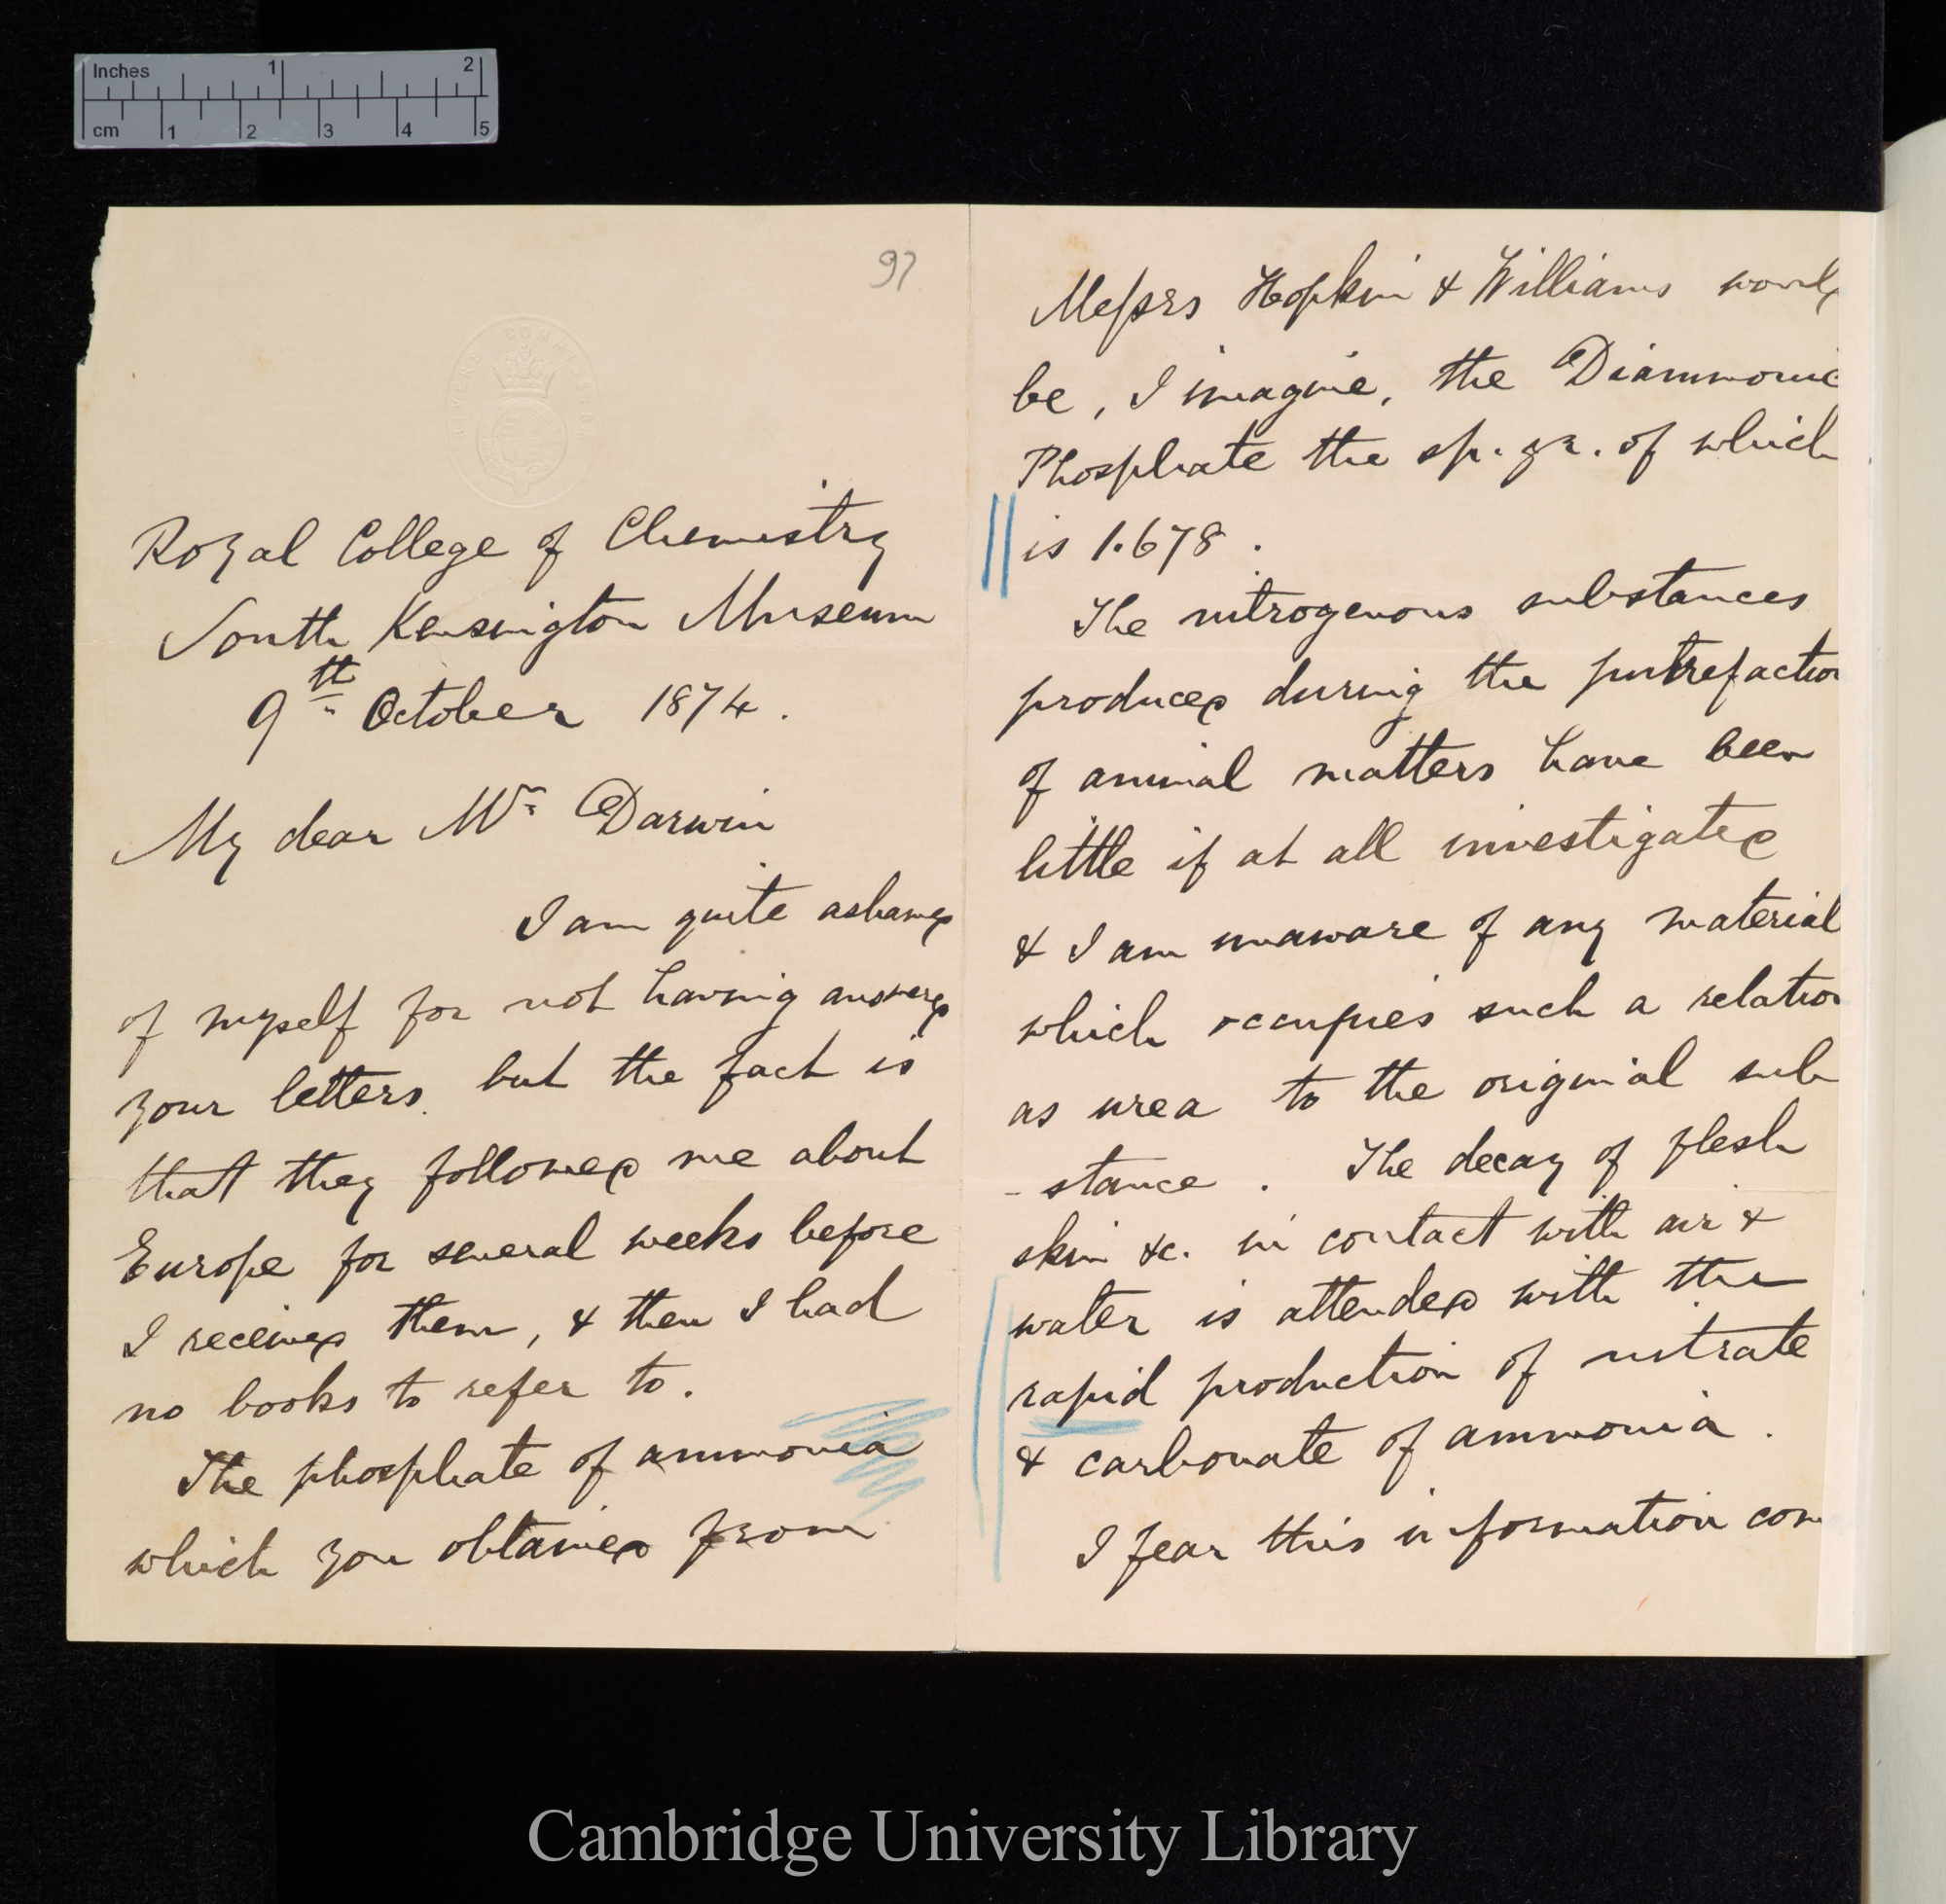 Inches 1 2
cm 1 2 3 4 5
97
RIVERS COMMISSION
Royal College of Chemistry
South Kensington Museum
9th October 1874.
My dear Mr Darwin
I am quite ashamed
of myself for not having answered
your letters, but the fact is
that they followed me about
Europe for several weeks before
I received them, & then I had
no books to refer to.
The phosphate of ammonia
which you obtained from
Messrs Hopkin & Williams would
be, I imagine, the Diammonic
Phosphate the sp. gr. of which
is 1.678.
The nitrogenous substances
produced during the putrefaction
of animal matters have been
little if at all investigated
& I am unaware of any material
which occupies such a relation
as urea to the original sub
-stance. The decay of flesh
skin &c. in contact with air &
water is attended with the
rapid production of nitrate
& carbonate of ammonia.
I fear this information com
Cambridge University Library